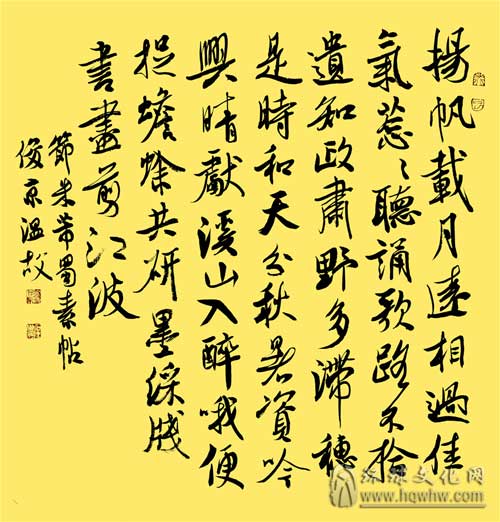 揚帆載月遠相過佳
氣蔥々聽誦歌路不拾
遺知政肅野多滯穗
是時和天分秋暑資吟
興晴獻溪山入醉哦便
捉蟾蜍共研墨綵牋
書盡剪江波
節米芾蜀素帖
俊京温故
环球文化网
www.hqwhw.com